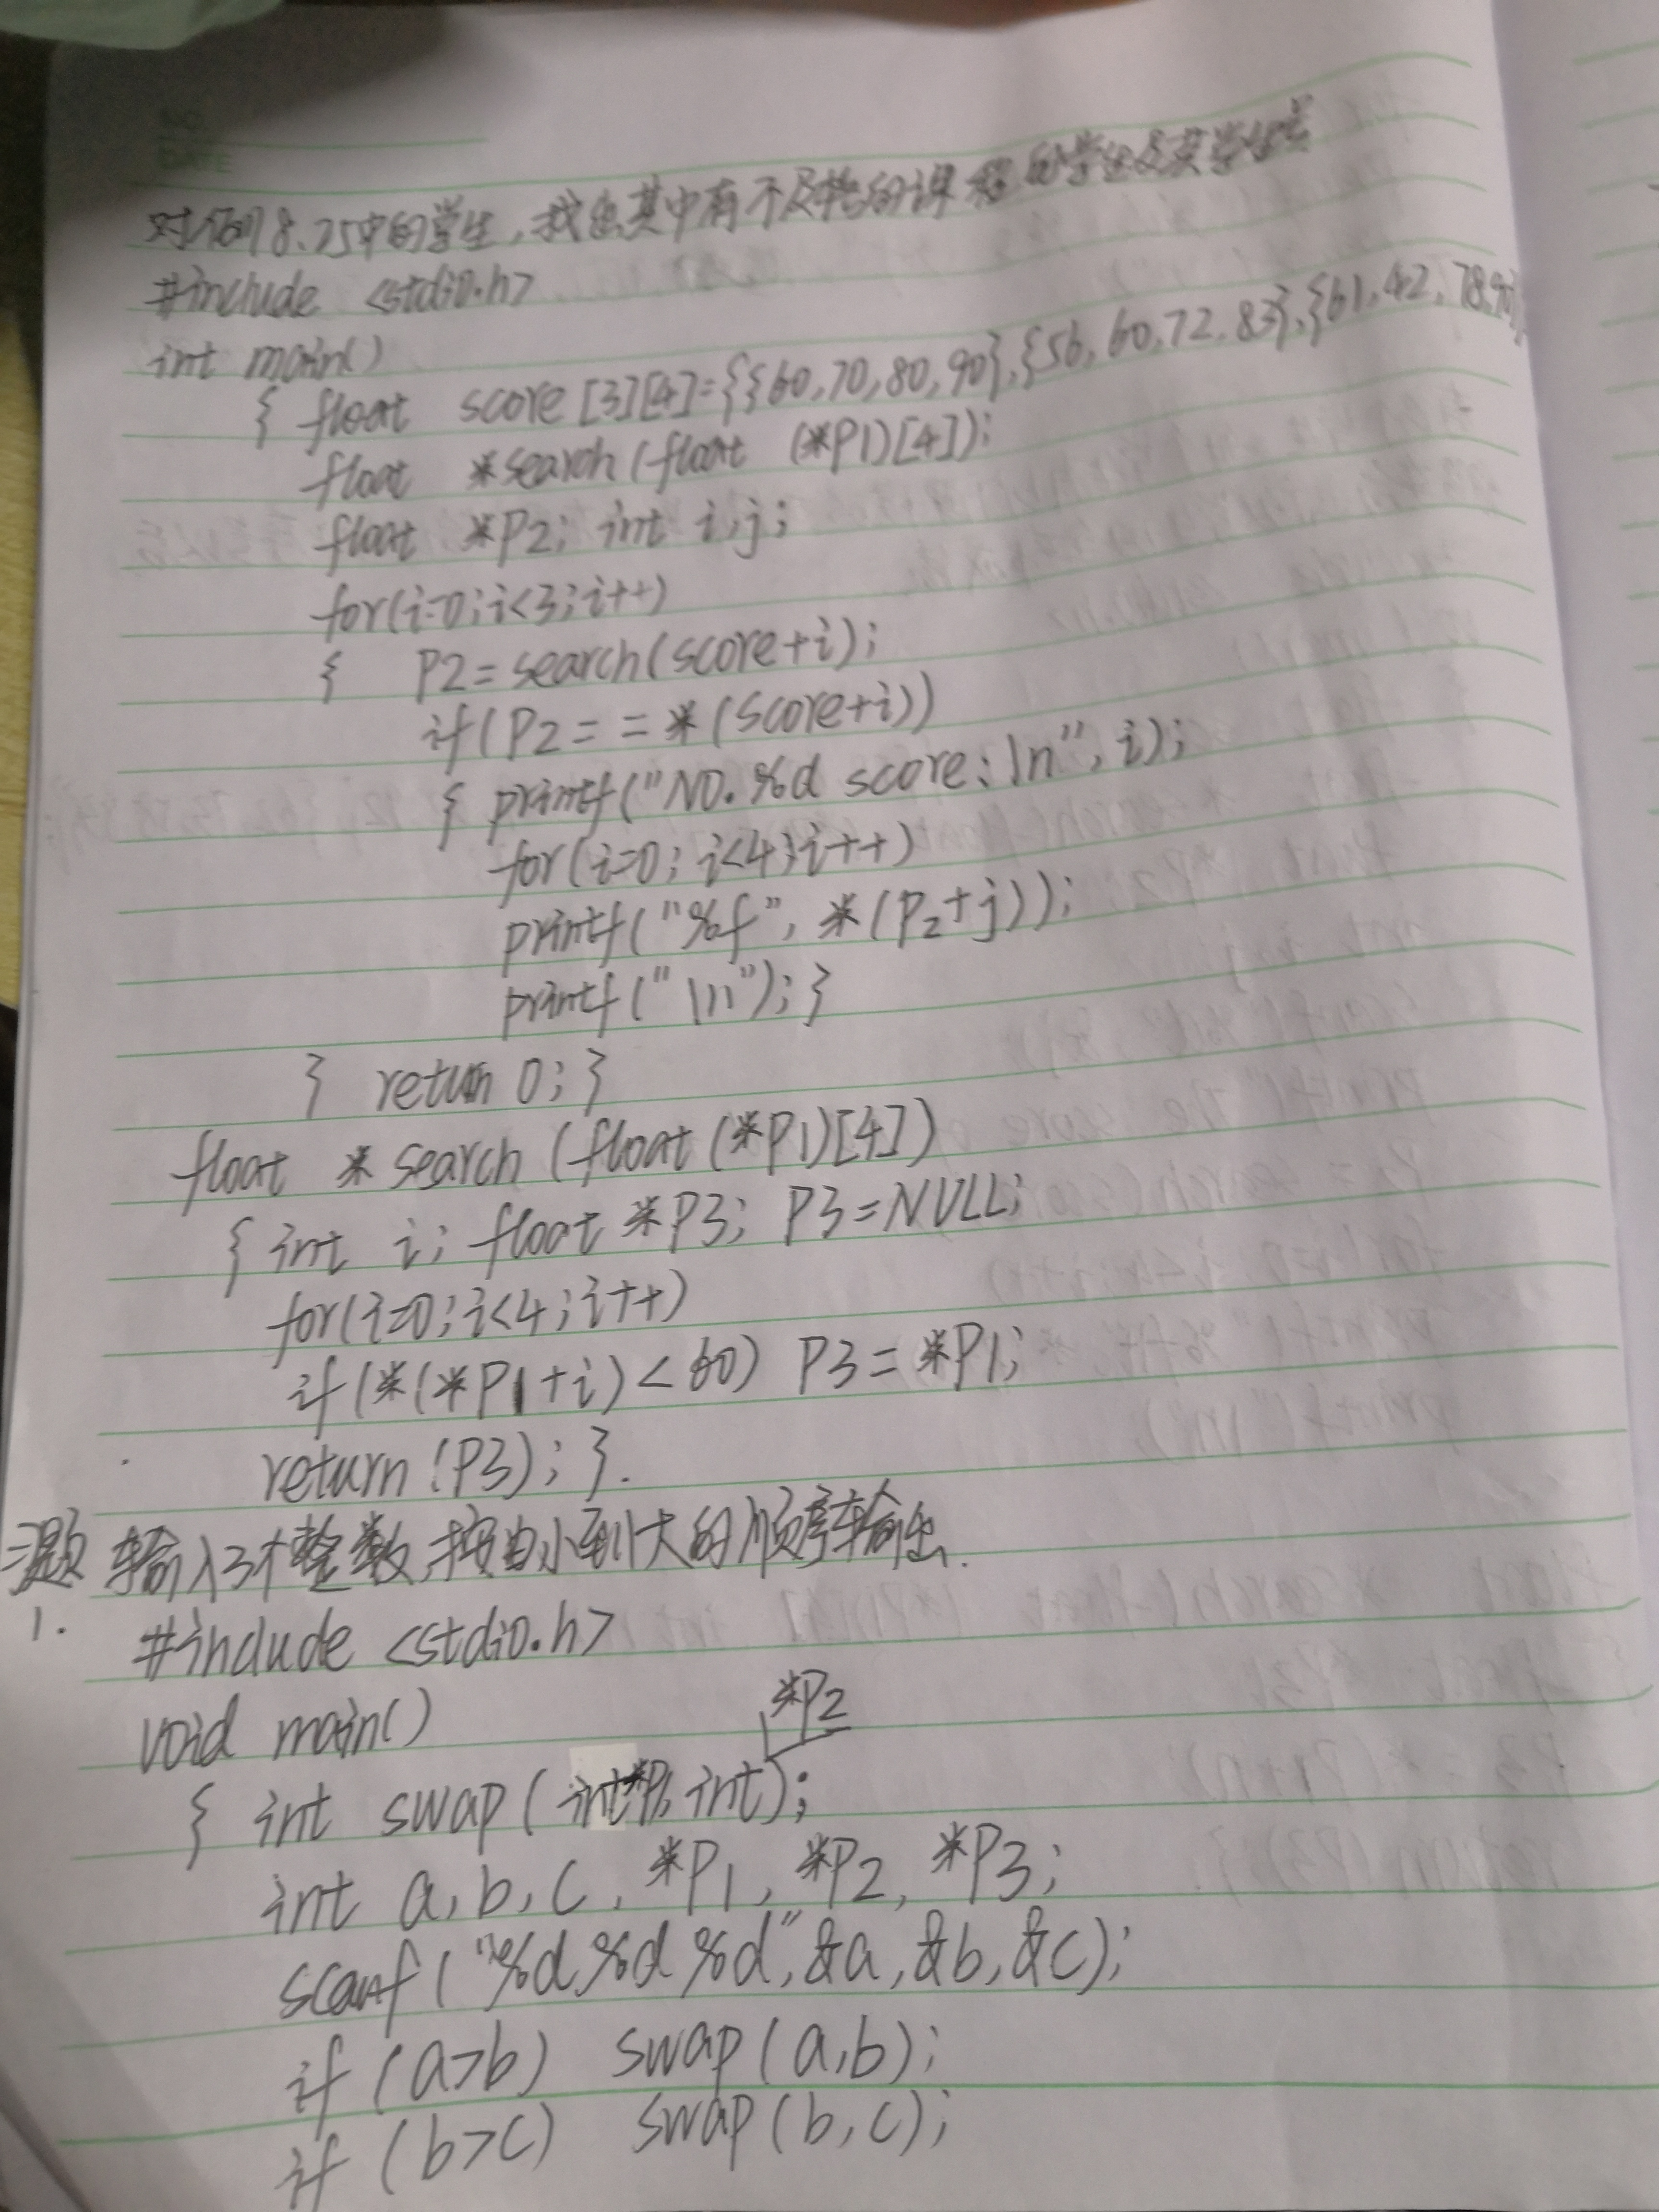 NO.
DATE
对例8.25中的学生,找出其中有不及格的课程的学生及其学生号
#include <stdio.h>
int main()
{ float score [3][4]={{60,70,80,90},{56,60,72,83},{61,42,78,90}
float *search(float (*P1)[4]);
float *P2; int i,j;
for(i=0;i<3;i++)
{ P2=search(score+i);
if(P2==*(score+i))
{ printf("NO.%d score:\n",i);
for(i=0;i<4;i++)
printf("%f",*(P2+j));
printf("\n");}
} return 0;}
float *search(float(*P1)[4])
{ int i; float *P3; P3=NULL;
for(i=0;i<4;i++)
if(*(*P1+i)<60) P3=*P1;
return(P3);}.
习题 输入3个整数,按由小到大的顺序输出.
1.
#include <stdio.h>
void main()
*P2
{ int swap(int*P1,int);
int a,b,c,*P1,*P2,*P3;
scanf("%d%d%d",&a,&b,&c);
if (a>b) swap(a,b);
if (b>c) swap(b,c);